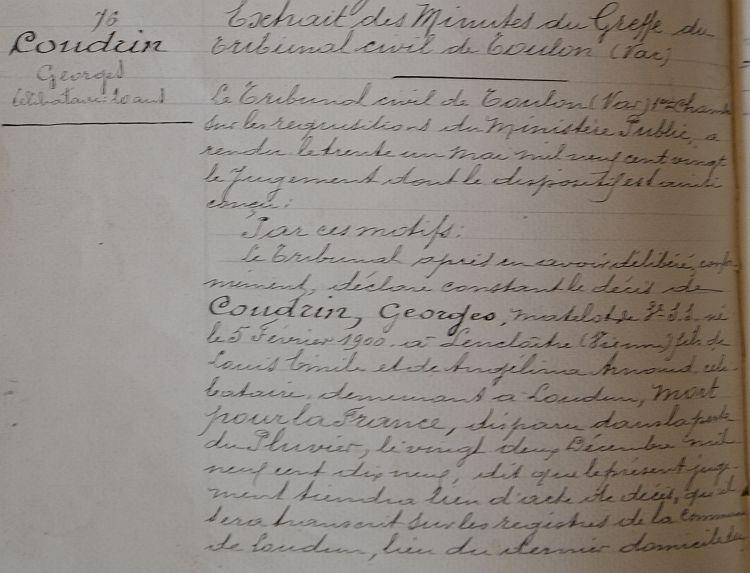 76
Coudrin
Georges
célibataire 20 ans
Extrait des Minutes du Greffe du
Tribunal civil de Toulon (Var)
Le Tribunal civil de Toulon (Var) 1ère Chambre
sur les requisitions du Ministère Public, a
rendu le trente un mai mil neuf cent vingt
le Jugement dont le dispositif est ainsi
conçu:
Par ces motifs:
Le Tribunal après en avoir délibéré, confor-
mément, déclare constant le décès de
Coudrin, Georges, matelot de 2e S.S. né
le 5 Février 1900 à Lencloître (Vienne) fils de
Louis Emile et de Angélina Arnaud, céli-
bataire, demeurant à Loudun, Mort
pour la France, disparu dans la perte
du Pluvier, le vingt deux Décembre mil
neuf cent dix neuf, dit que le présent juge-
ment tiendra lieu d'acte de décès, qu'il
sera transcrit sur les registres de la Commune
de Loudun, lieu du dernier domicile du